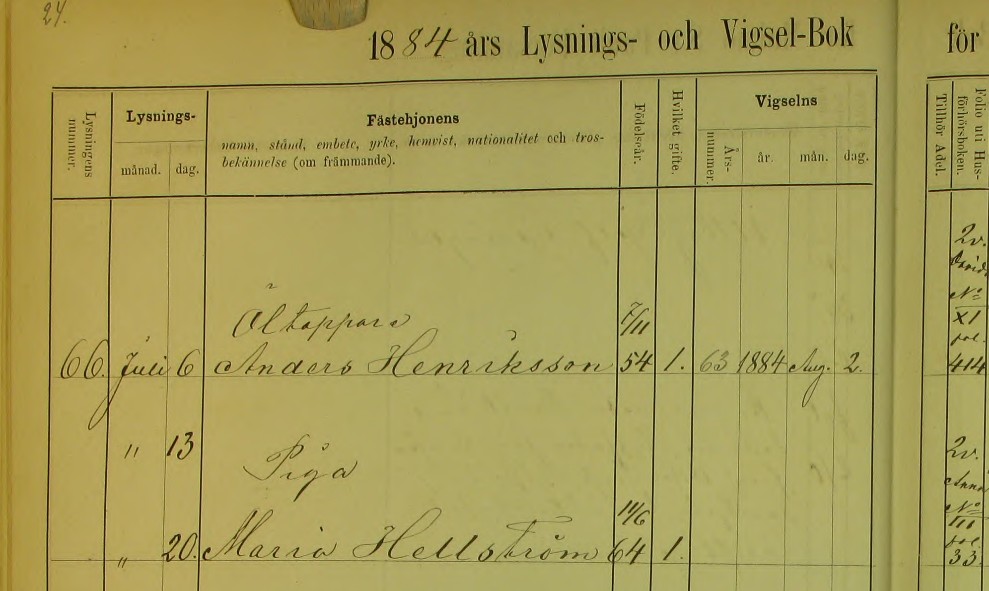 24.
1884 års Lysnings- och Vigsel-Bok för
Lysningens nummer.
Lysnings-
månad. dag.
Fästehjonens
namn, stånd, embete, yrke, hemvist, nationalitet och tros-
bekännelse (om främmande).
Födelseår.
Hvilket gifte.
Vigselns
Års-nummer. år. mån. dag.
Tillhör Adel.
Folio uti Hus-
förhörsboken.
2v.
No
XI
Öltappare 7/11
66. Juli 6 Anders Henriksson 54 1. 63 1884 Aug. 2. 414
" 13 2v.
Piga Anna
No
III
11/6
" 20. Maria Hellström 64 1. 33.